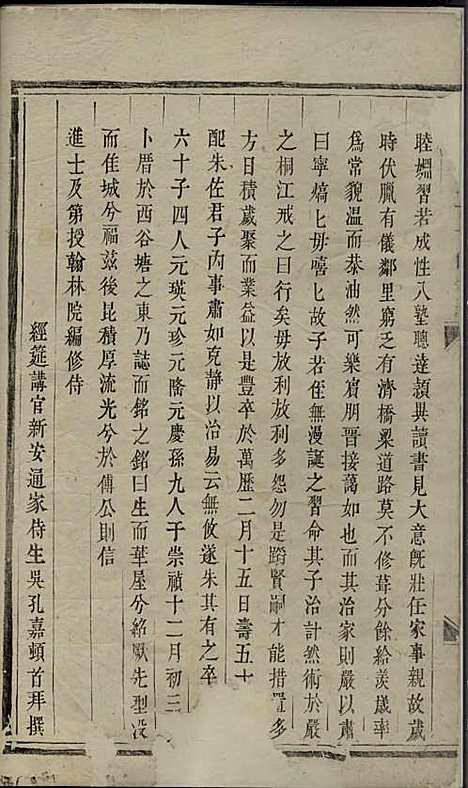 睦婣習若成性入塾聰逹頴異讀書見大意旣壯任家事親故歲
時伏臘有儀鄰里窮乏有濟橋梁道路莫不修葺分餘給羨歲率
爲常貌溫而恭油然可樂賔朋晉接藹如也其治家則嚴以肅
曰寧熇匕毋嘻匕故子若侄無漫誕之習命其子治計然術於嚴
之桐江戒之曰行矣毋放利放利多怨勿是蹐賢嗣才能措置多
方日積歲聚而業益以是豐卒於萬歷二月十五日壽五十
配朱佐君子丙事肅如克靜以治易云無攸遂朱其有之卒
六十子四人元瑛元珍元隆元慶孫九人于崇禎十二月初三
卜厝於西谷塘之東乃誌而銘之銘曰生而華屋兮紹厥先型没
而佳城兮福茲後昆積厚流光兮於傅公則信
進士及第授翰林院編修侍
經筵講官新安通家侍生吳孔嘉頓首拜撰